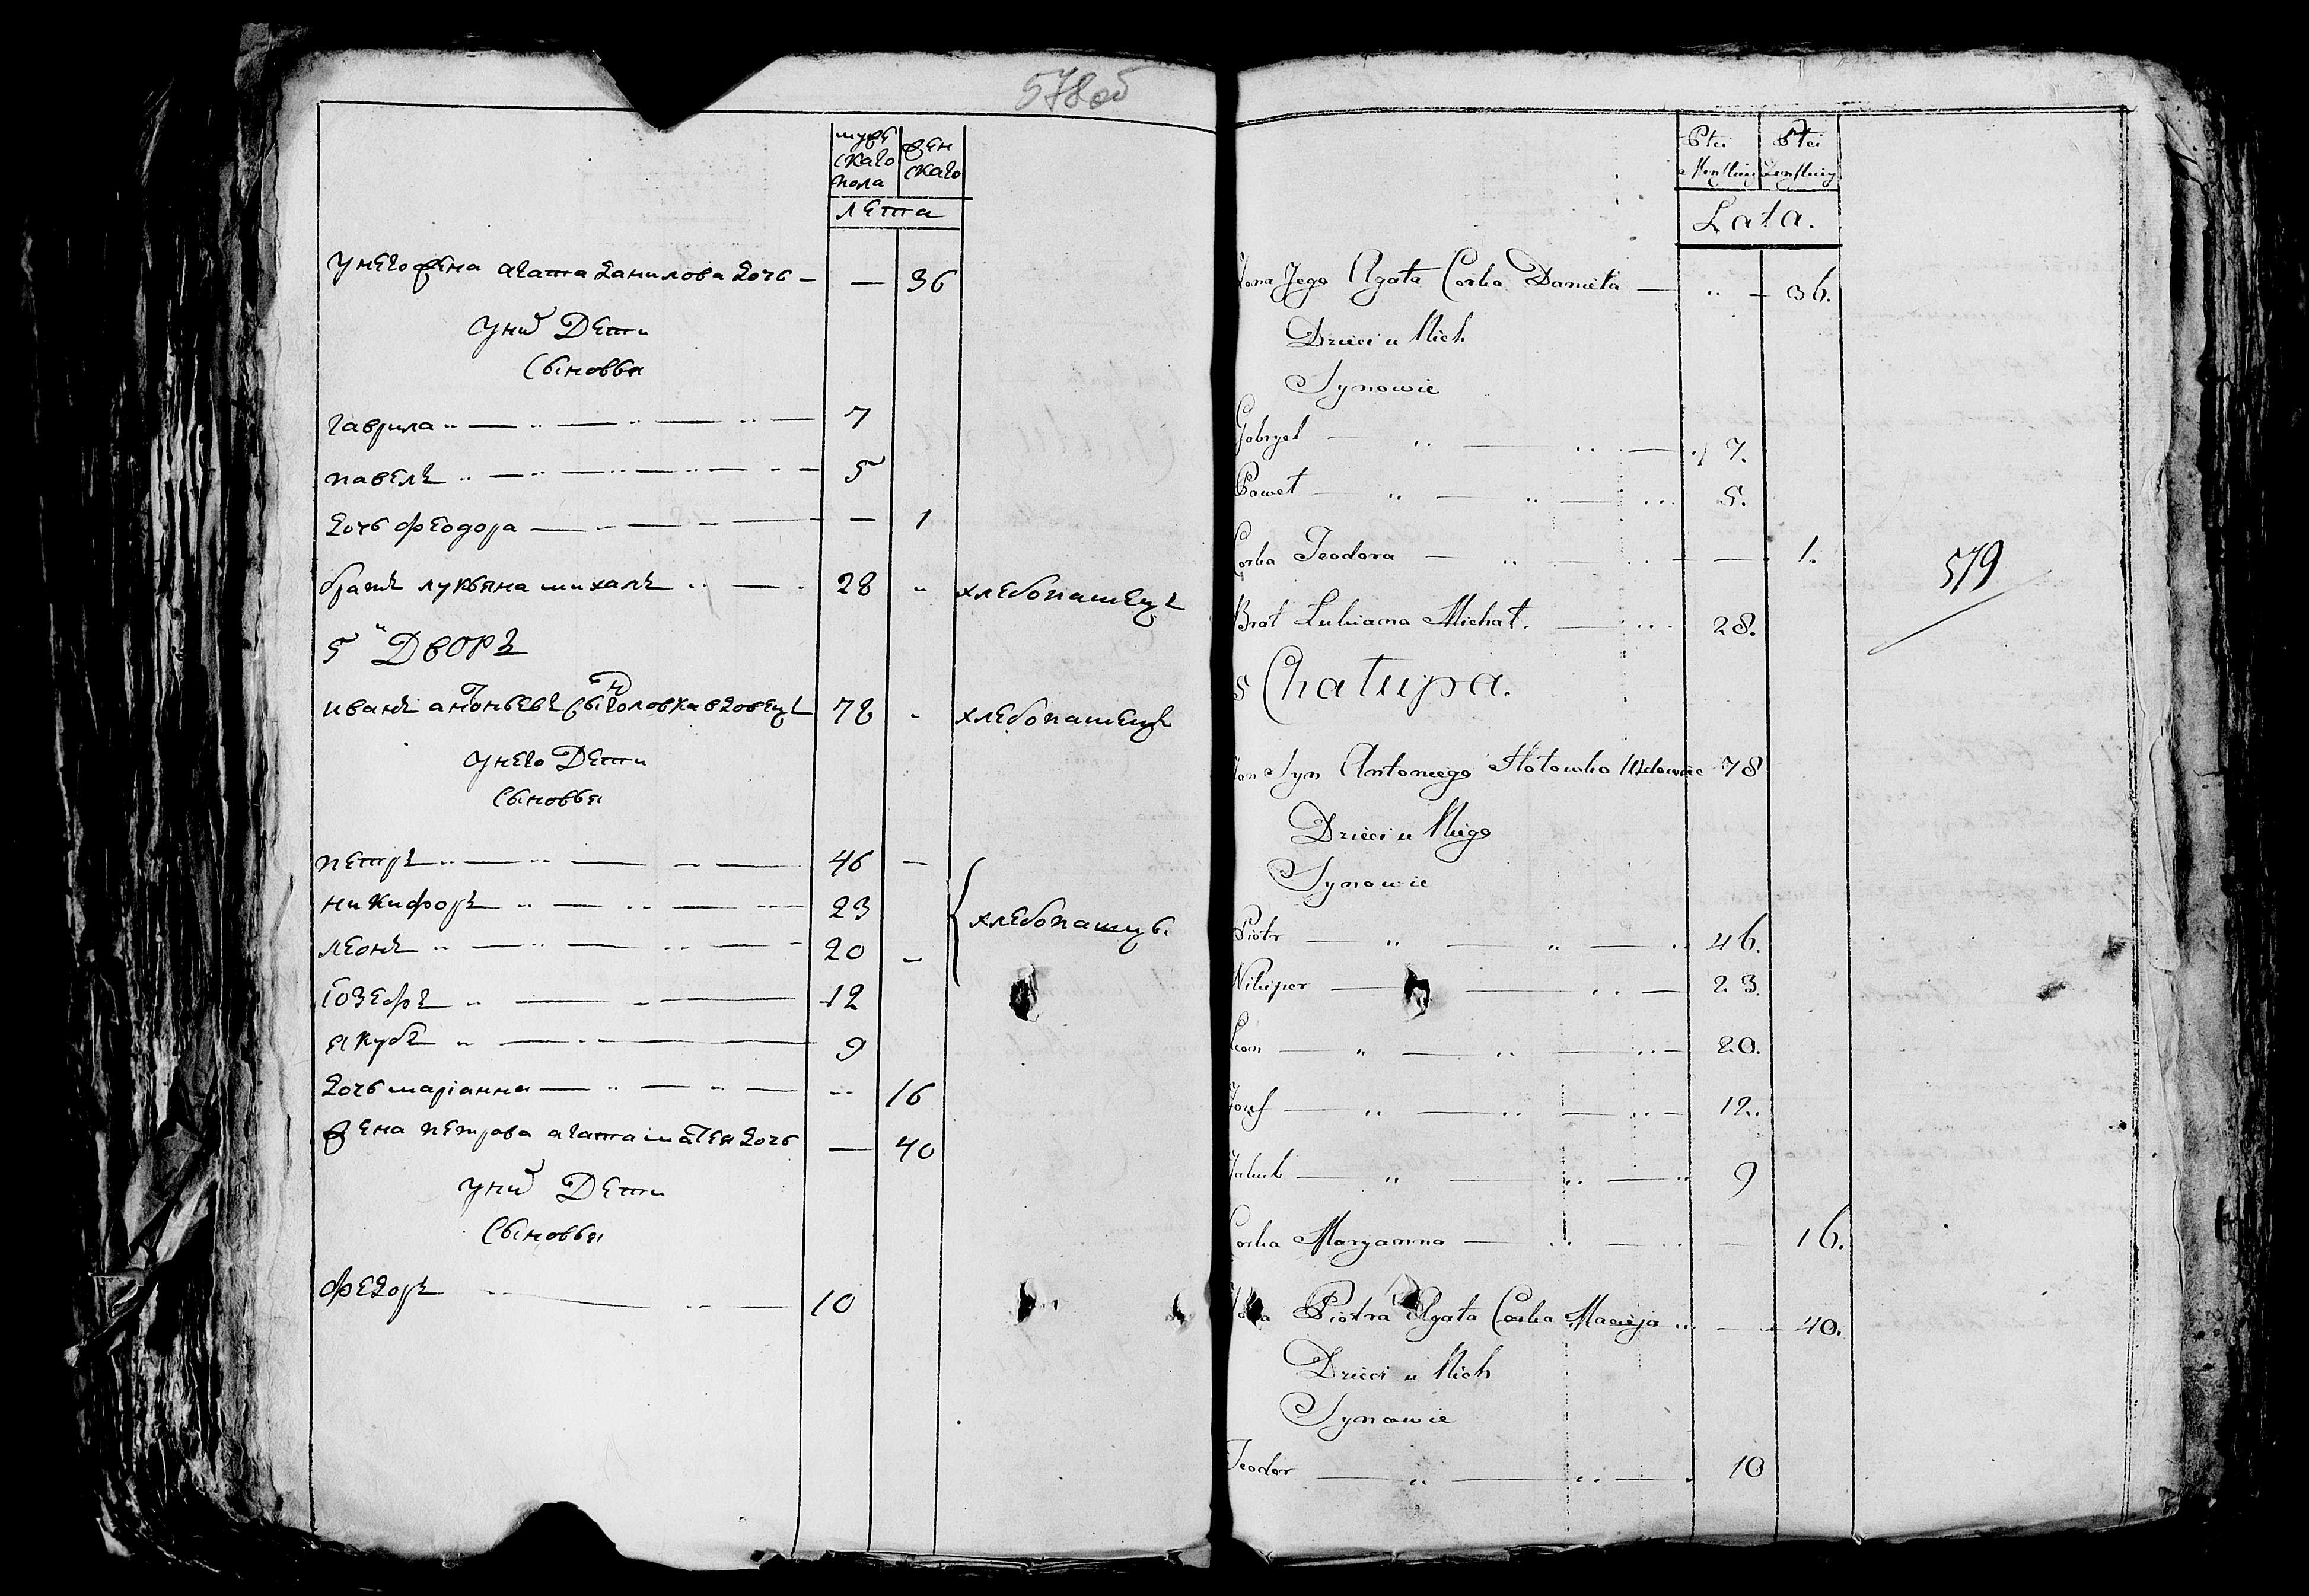 578об
мужескаго пола
женскаго
лета
у него жена агата данилова дочь — — 36
у них Дети
Сыновья
гаврила 7
павелъ 5
дочь феодора — 1
братъ лукьяна михалъ 28 хлебопашецъ
5й Дворъ
иванъ антоньевъ сынъ головка вдовецъ 78 хлебопашецъ
у него Дети
Сыновья
петръ 46 —
никифоръ 23
леонъ 20 — хлебопашцы
Iозефъ 12
якубъ 9
дочь маріанна 16
жена петрова агата матея дочь — 40
у них Дети
Сыновья
федоръ 10
Płci Męskiey
Płci Żeńskiey
Lata.
Żona Jego Agata Corka Daniela — 36.
Dzieci u Nich
Synowie
Gabryel 7.
Paweł 5.
Corka Teodora — 1.
579
Brat Lukiana Michał. 28.
5 Chałupa.
Jan Syn Antoniego Hołowko Wdowiec 78
Dzieci u Niego
Synowie
Piotr 46.
Nikiper 23.
Leon 20.
Jozef 12.
Jakub 9
Corka Maryanna — 16.
Żona Piotra Agata Corka Macieja — 40.
Dzieci u Nich
Synowie
Teodor 10